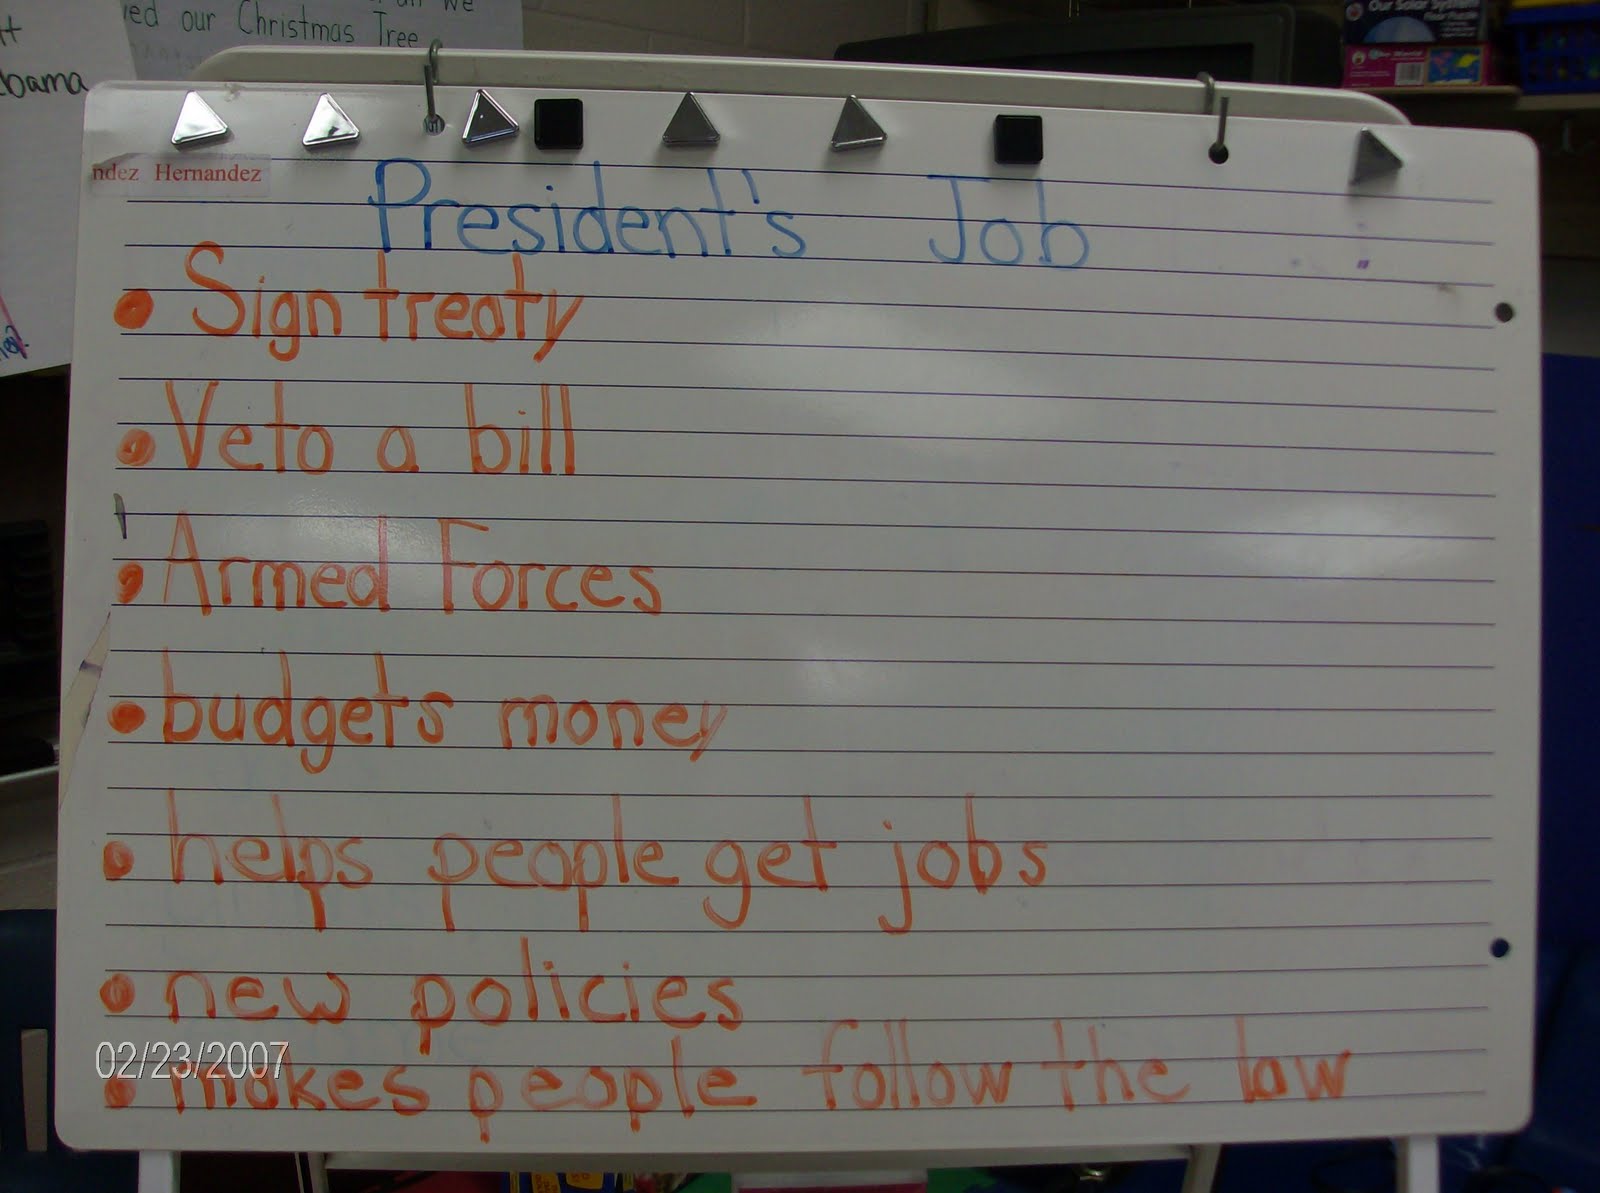 ved our Christmas Tree
we
Obama
Our Solar System
Hernandez
President's Job
• Sign treaty
• Veto a bill
• Armed Forces
• budgets money
• helps people get jobs
• new policies
• makes people follow the law
02/23/2007